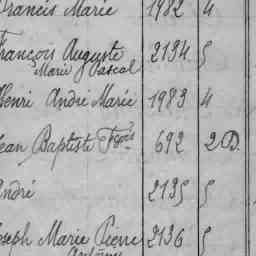 Francis Marie 1982 4
François Auguste 2134 5
Marie Pascal
Henri André Marie 1983 4
Jean Baptiste Fçois 692 2D.
André 2135 5
Joseph Marie Pierre 2136 5